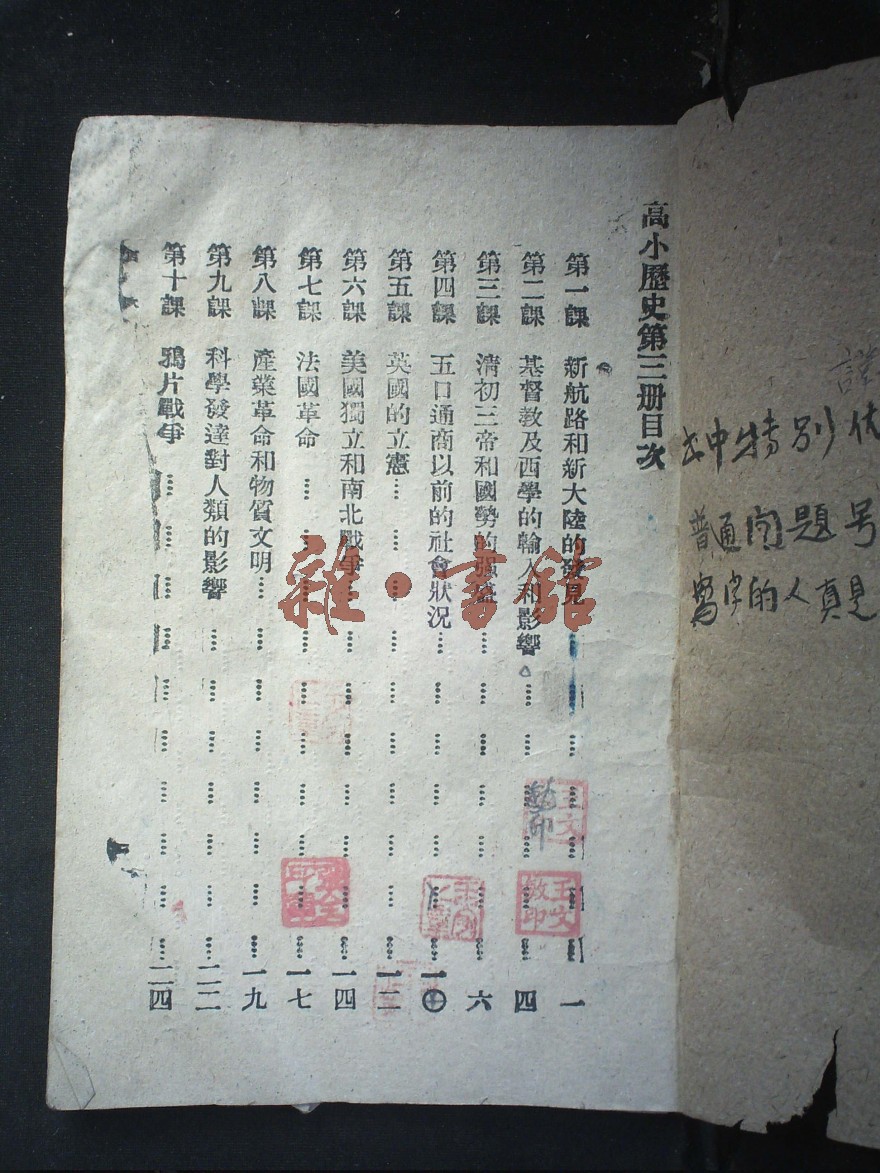 高小歷史第三册目次
第一課 新航路和新大陸的發見 一
第二課 基督教及西學的輸入和影響 四
第三課 清初三帝和國勢的强盛 六
第四課 五口通商以前的社會狀況 一〇
第五課 英國的立憲 一二
第六課 美國獨立和南北戰爭 一四
第七課 法國革命 一七
第八課 產業革命和物質文明 一九
第九課 科學發達對人類的影響 二二
第十課 鴉片戰爭 二四
中特別
普通問題号
寫字的人真是
王文
敏印
雜·書館